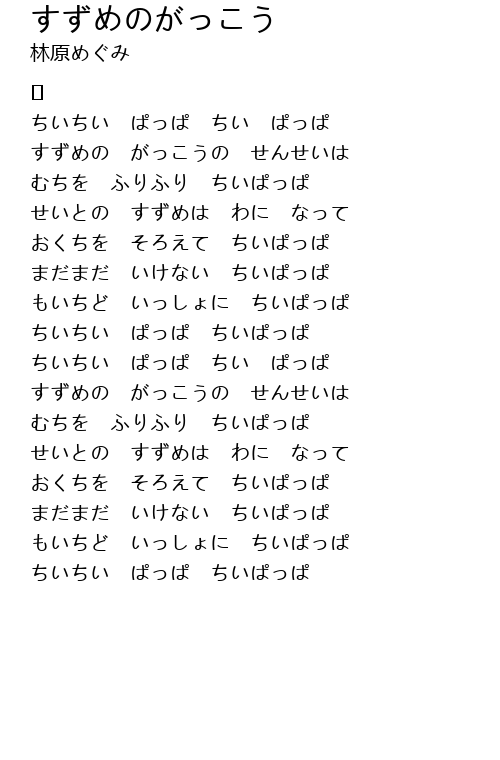 すずめのがっこう
林原めぐみ
ちいちい　ぱっぱ　ちい　ぱっぱ
すずめの　がっこうの　せんせいは
むちを　ふりふり　ちいぱっぱ
せいとの　すずめは　わに　なって
おくちを　そろえて　ちいぱっぱ
まだまだ　いけない　ちいぱっぱ
もいちど　いっしょに　ちいぱっぱ
ちいちい　ぱっぱ　ちいぱっぱ
ちいちい　ぱっぱ　ちい　ぱっぱ
すずめの　がっこうの　せんせいは
むちを　ふりふり　ちいぱっぱ
せいとの　すずめは　わに　なって
おくちを　そろえて　ちいぱっぱ
まだまだ　いけない　ちいぱっぱ
もいちど　いっしょに　ちいぱっぱ
ちいちい　ぱっぱ　ちいぱっぱ